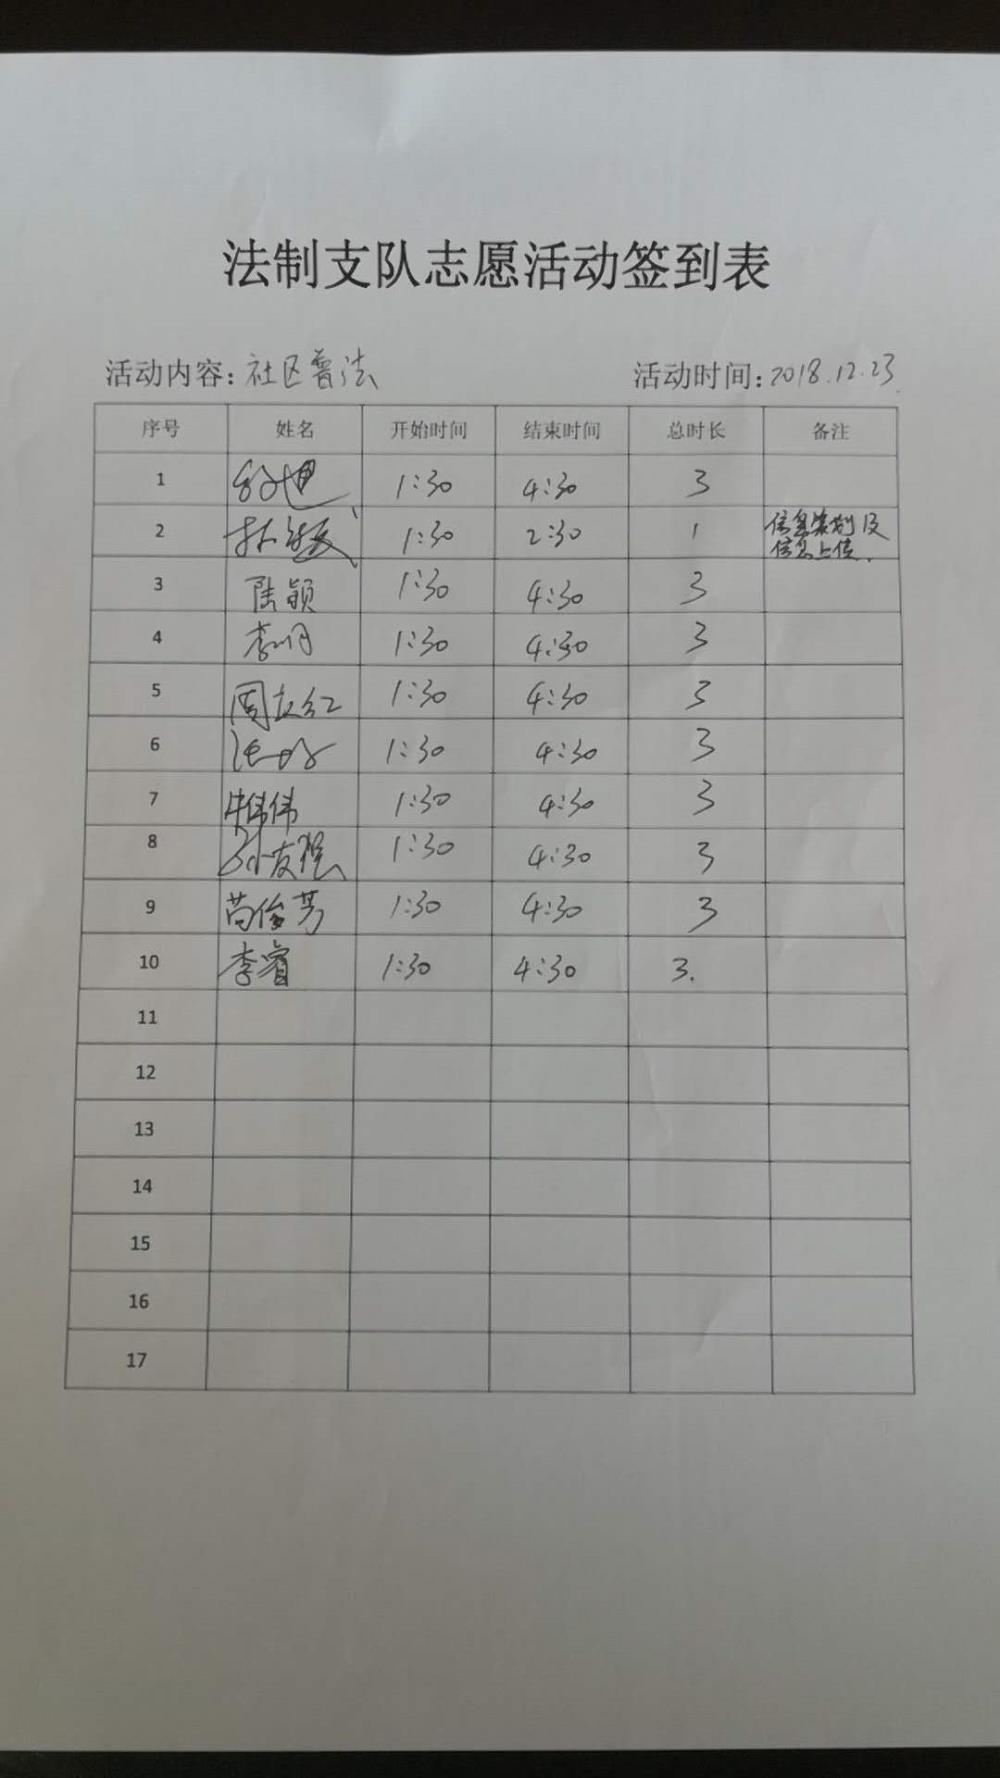 法制支队志愿活动签到表
活动内容：社区普法 活动时间：2018.12.23
序号 姓名 开始时间 结束时间 总时长 备注
1 1:30 4:30 3
2 1:30 2:30 1 信息策划及
信息上传.
3 陆颖 1:30 4:30 3
4 李明 1:30 4:30 3
5 周友红 1:30 4:30 3
6 1:30 4:30 3
7 牛伟伟 1:30 4:30 3
8 孙友强 1:30 4:30 3
9 苗俊芳 1:30 4:30 3
10 李睿 1:30 4:30 3.
11
12
13
14
15
16
17